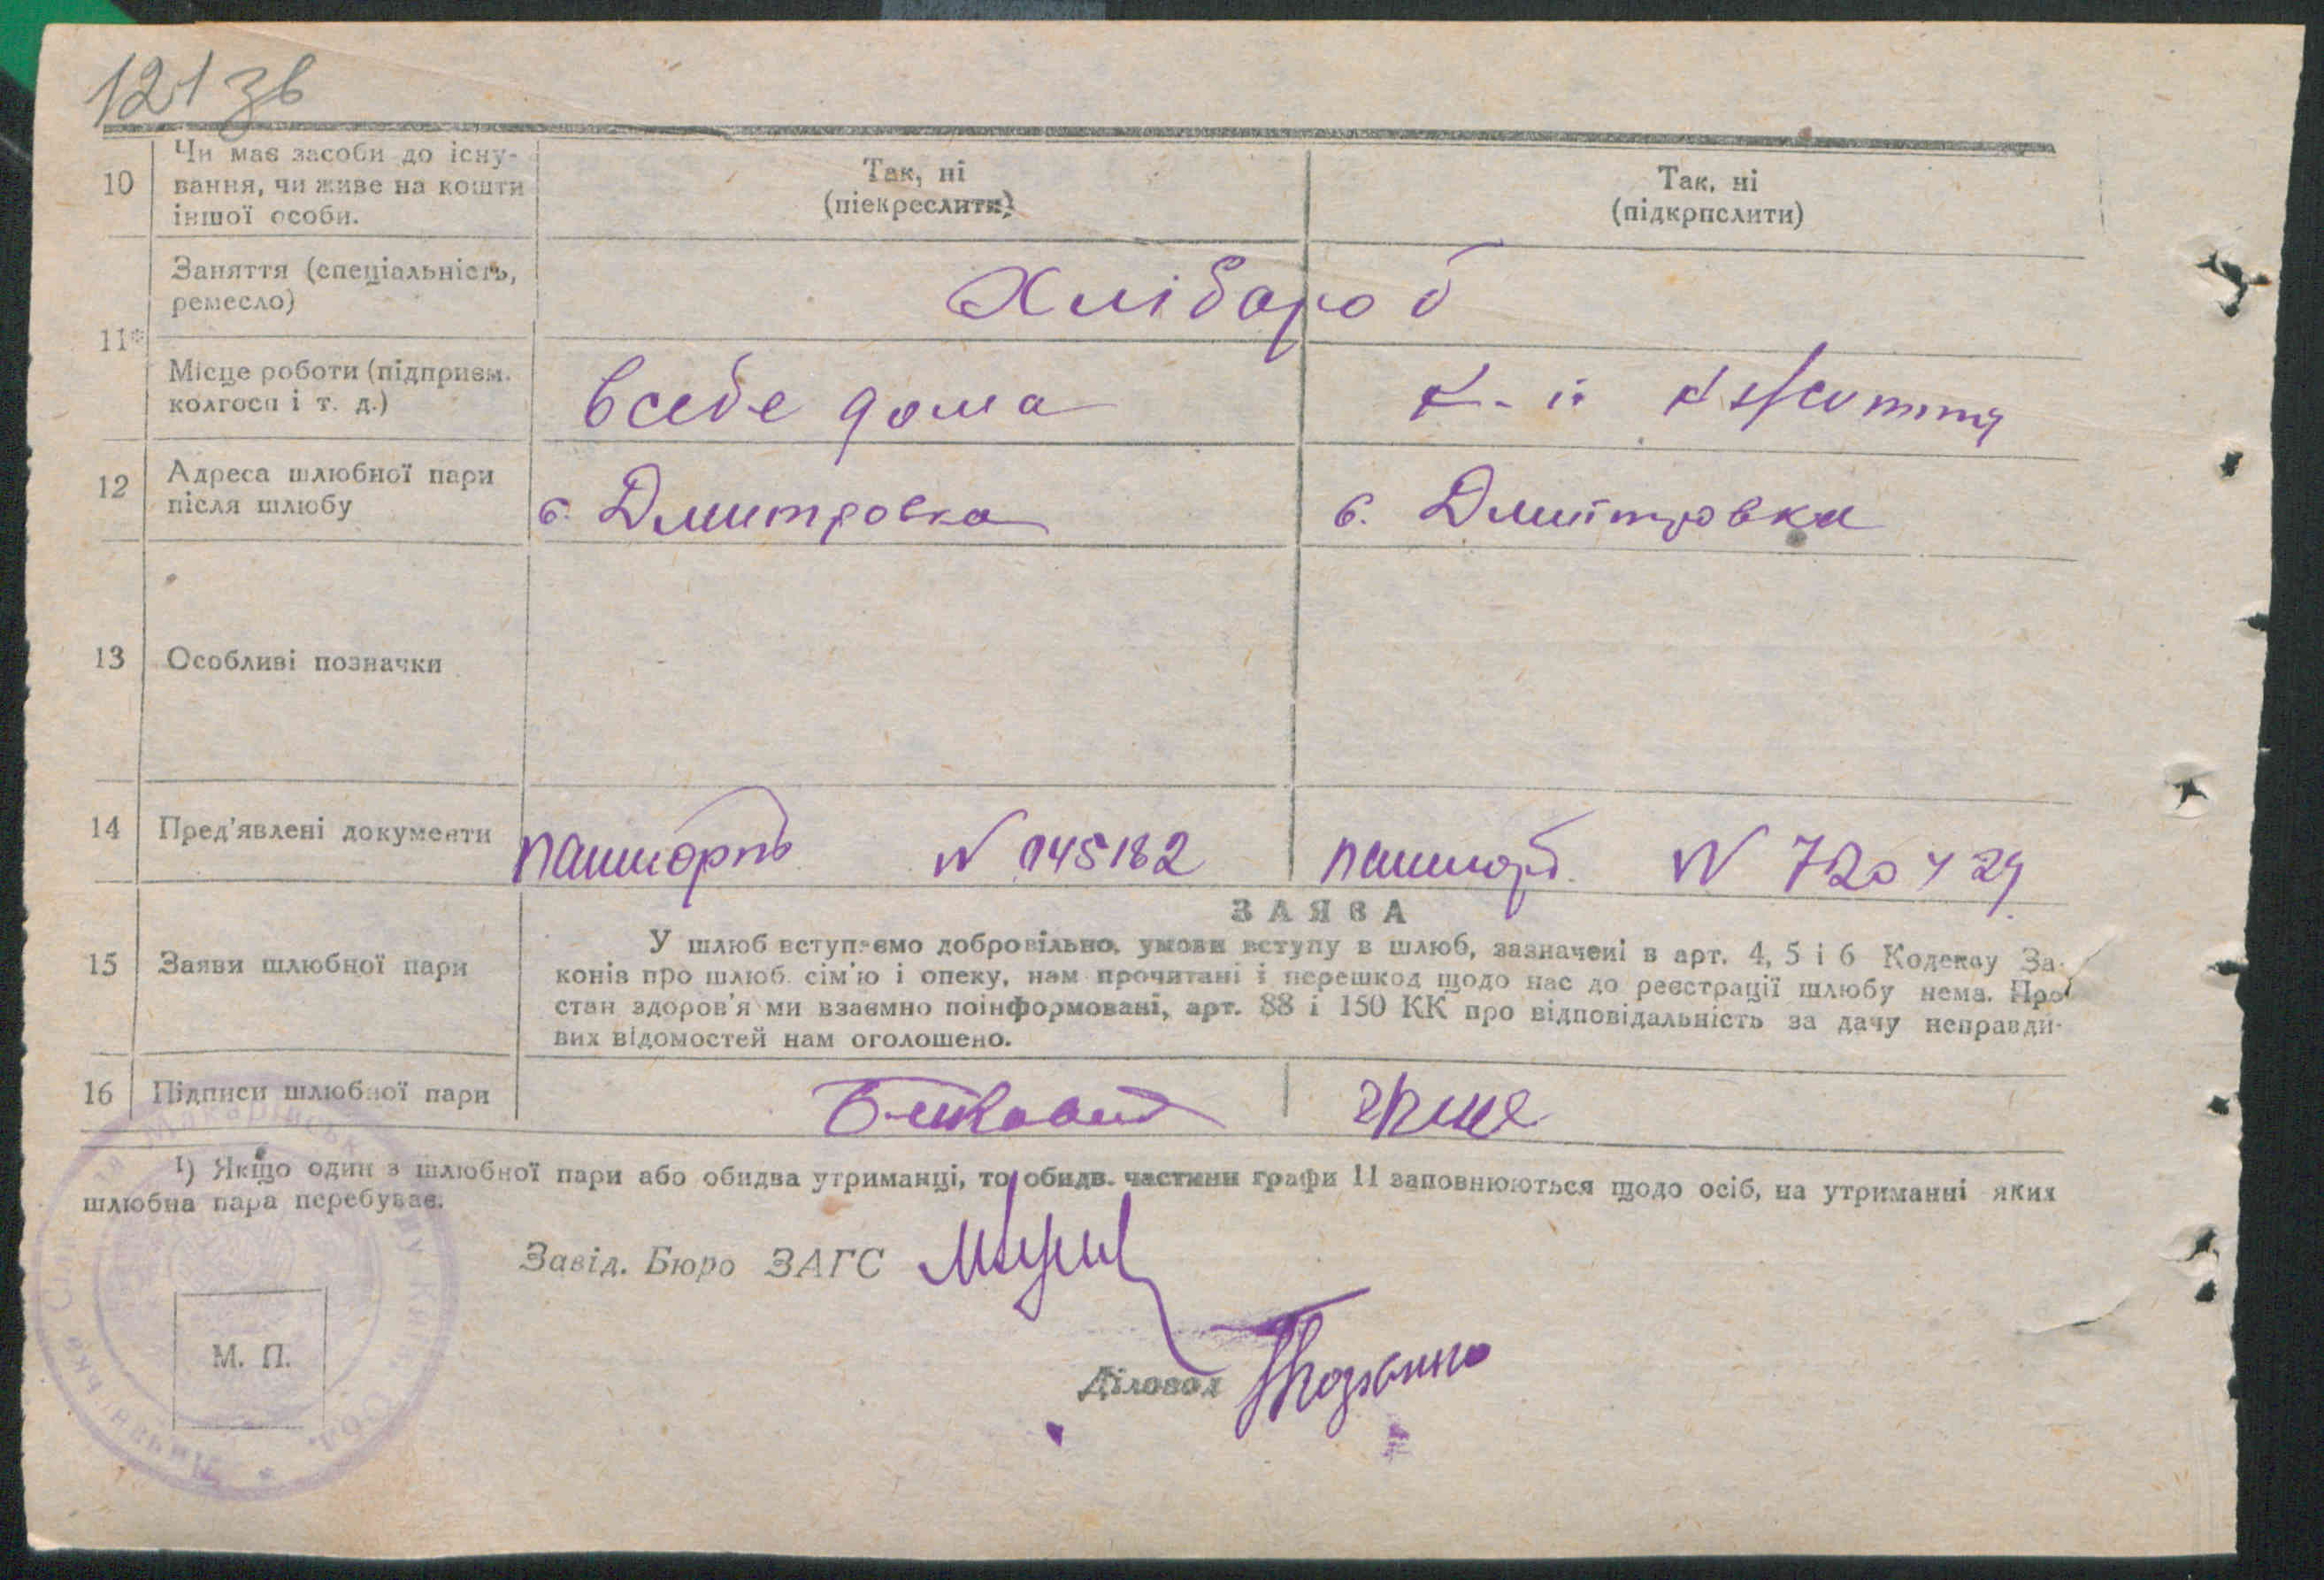 121 зв
10
Чи має засоби до існу-
вання, чи живе на кошти
іншої особи.
Так, ні
(піекреслити)
Так, ні
(підкрпслити)
11*
Заняття (спеціальність,
ремесло)
Хлібароб
Місце роботи (підприєм.
колгосп і т. д.)
в себе дома
12
Адреса шлюбної пари
після шлюбу
с. Дмитровка
с. Дмитровка
13
Особливі позначки
14
Пред'явлені документи
пашпортъ N 045182
пашпорт N 720429
15
Заяви шлюбної пари
ЗАЯВА
У шлюб вступаємо добровільно, умови вступу в шлюб, зазначені в арт. 4, 5 і 6 Кодексу За-
конів про шлюб сім'ю і опеку, нам прочитані і перешкод щодо нас до реєстрації шлюбу нема. Про
стан здоров'я ми взаємно поінформовані, арт. 88 і 150 КК про відповідальність за дачу неправди-
вих відомостей нам оголошено.
16
Підписи шлюбної пари
1) Якщо один з шлюбної пари або обидва утриманці, то обидв. частини графи 11 заповнюються щодо осіб, на утриманні яких
шлюбна пара перебуває.
Завід. Бюро ЗАГС
Діловод
М. П.